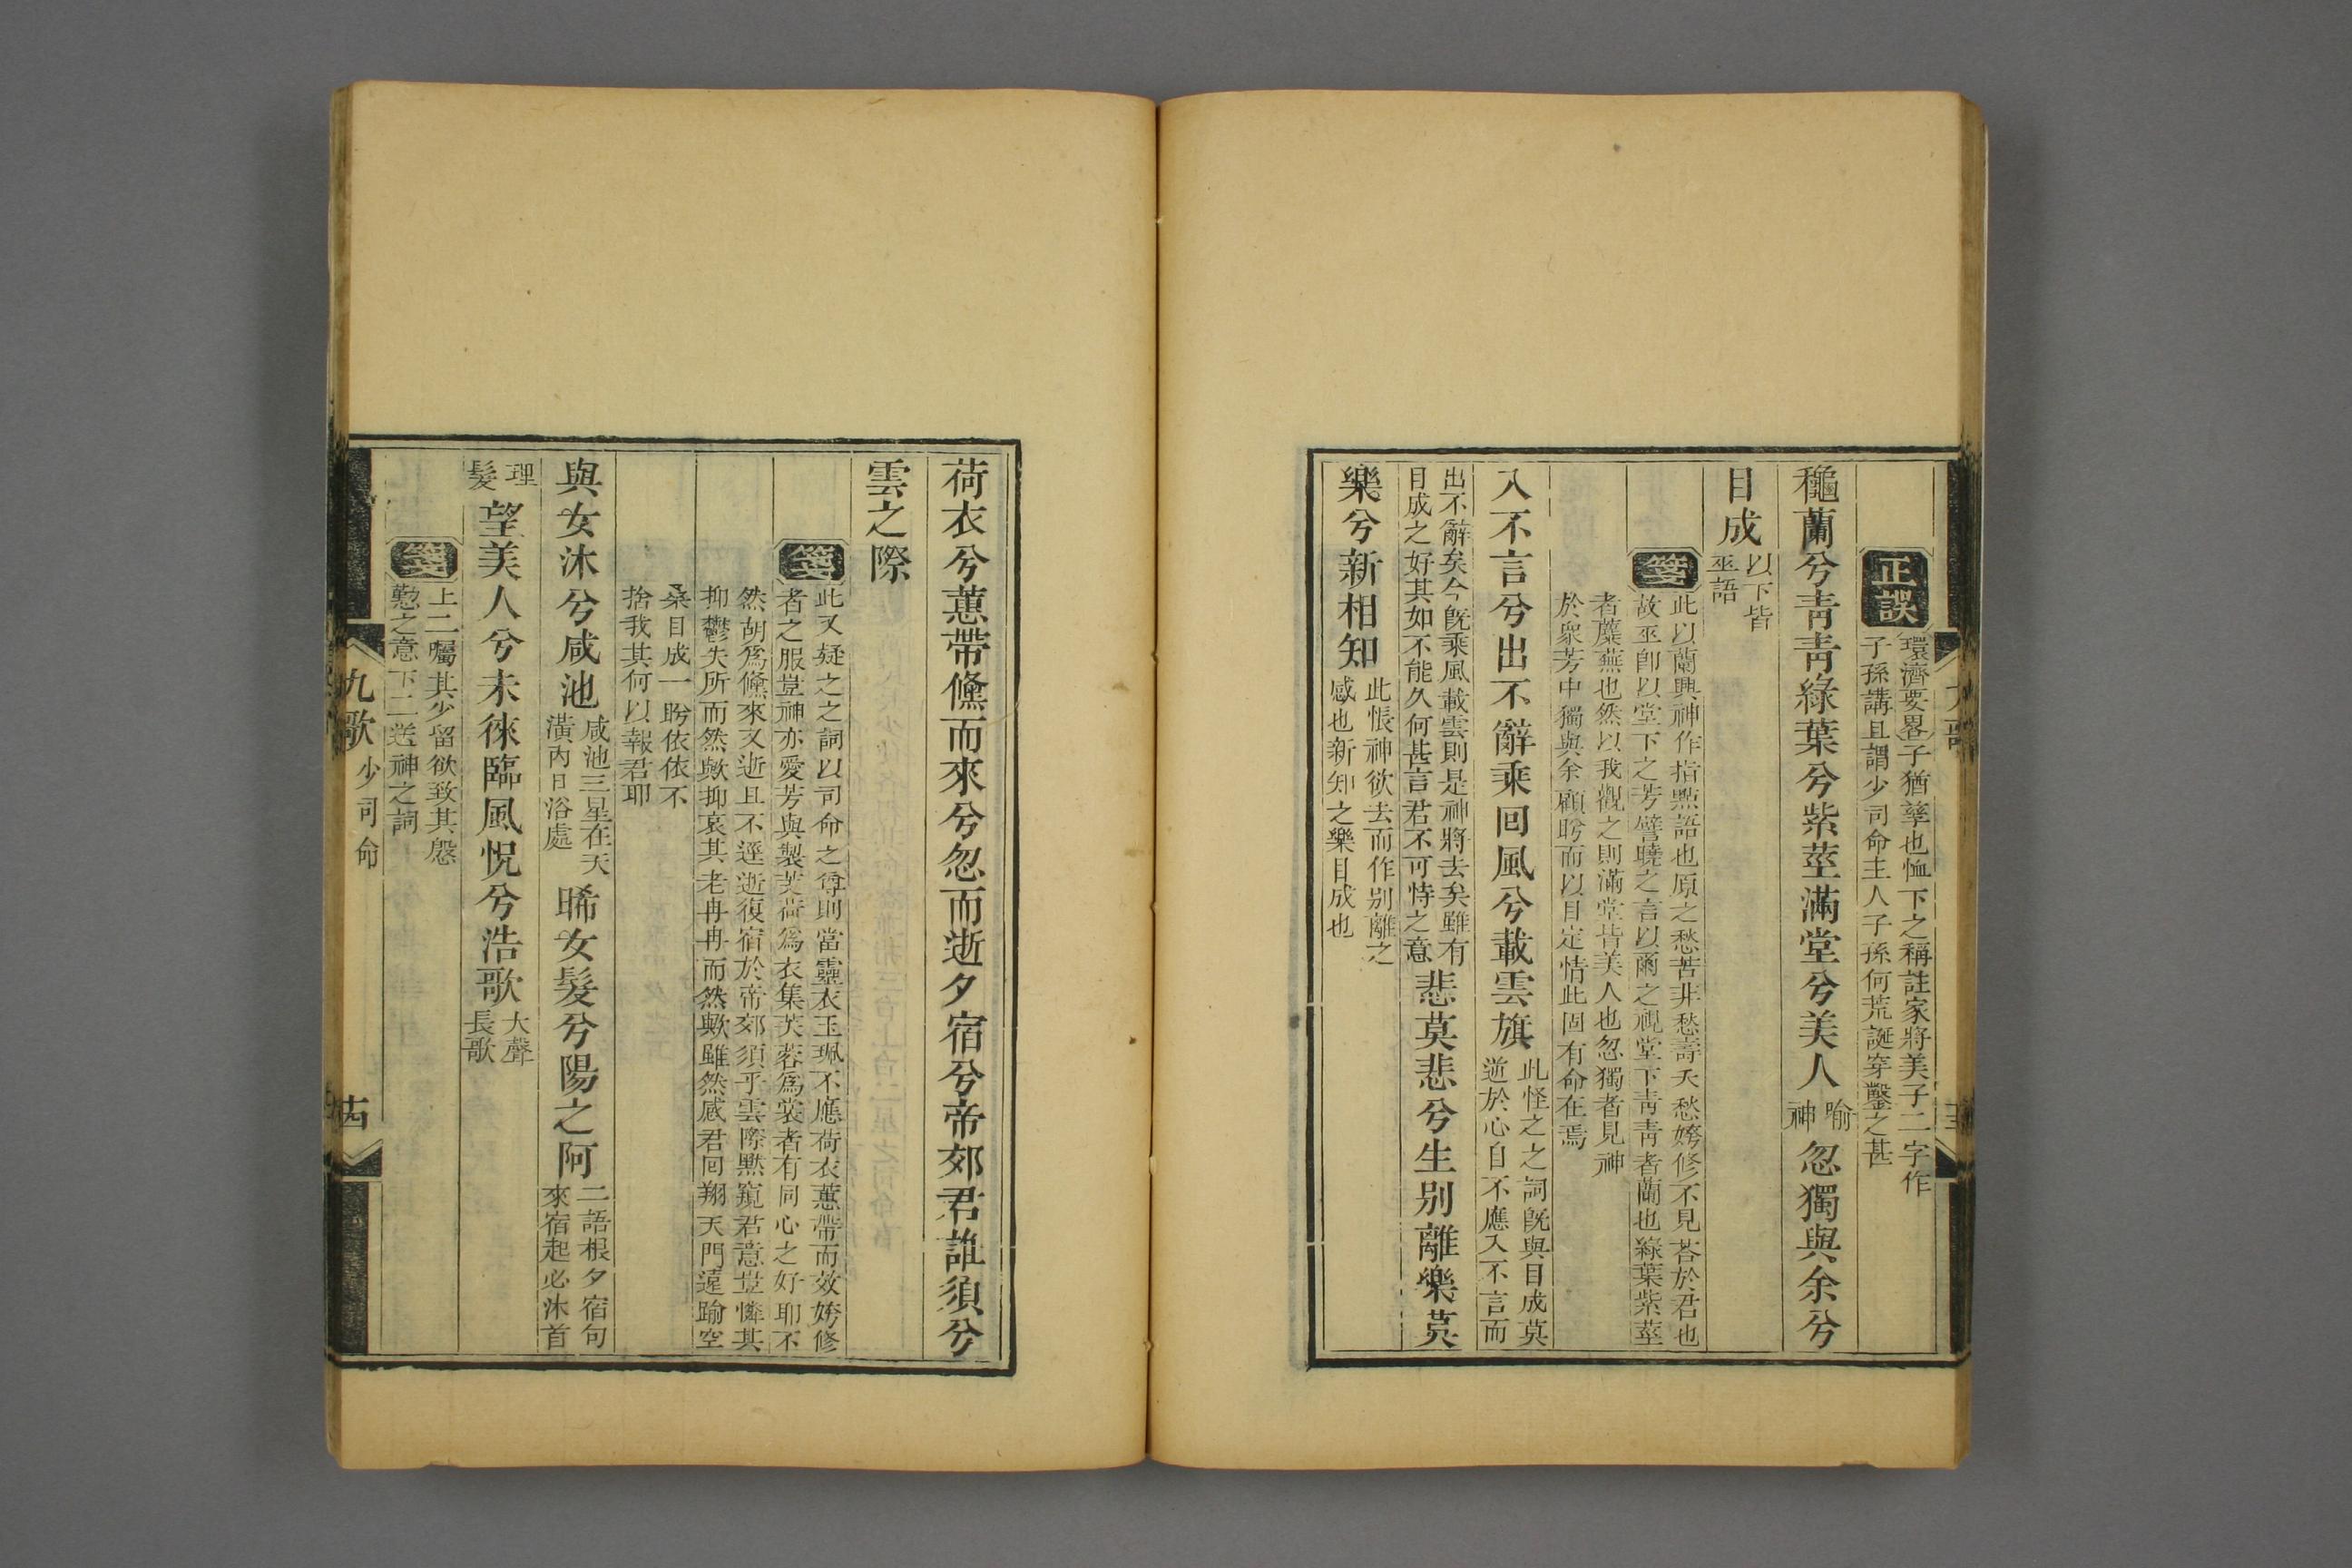 正誤
環濟要畧子猶孳也恤下之稱註家將美子二字作
子孫講且謂少司命主人子孫何荒誕穿鑿之甚
穐蘭兮靑靑綠葉兮紫莖滿堂兮美人
喻
神
忽獨與余兮
目成
以下皆
巫語
箋
此以蘭興神作指點語也原之愁苦非愁壽夭愁姱修不見荅於君也
故巫卽以堂下之芳譬曉之言以爾之視堂下靑靑者蘭也綠葉紫莖
者蘪蕪也然以我觀之則滿堂皆美人也忽獨者見神
於衆芳中獨與余顧盻而以目定情此固有命在焉
入不言兮出不辭乘回風兮載雲旗
此怪之之詞旣與目成莫
逆於心自不應入不言而
出不辭矣今旣乘風載雲則是神將去矣雖有
目成之好其如不能久何甚言君不可恃之意
悲莫悲兮生別離樂莫
樂兮新相知
此悵神欲去而作別離之
感也新知之樂目成也
荷衣兮蕙帶儵而來兮忽而逝夕宿兮帝郊君誰須兮
雲之際
箋
此又疑之之詞以司命之尊則當靈衣玉珮不應荷衣蕙帶而效姱修
者之服豈神亦愛芳與製芰荷爲衣集芙蓉爲裳者有同心之好耶不
然胡爲儵來又逝且不逕逝復宿於帝郊須乎雲際黙窺君意豈憐其
抑鬱失所而然歟抑哀其老冉冉而然歟雖然感君回翔天門遠踰空
桑目成一盻依依不
捨我其何以報君耶
與女沐兮咸池
咸池三星在天
潢丙日浴處
晞女髮兮陽之阿
二語根夕宿句
來宿起必沐首
理
髮
望美人兮未徠臨風怳兮浩歌
大聲
長歌
箋
上二囑其少留欲致其慇
懃之意下二送神之詞
九歌
少司命
十四